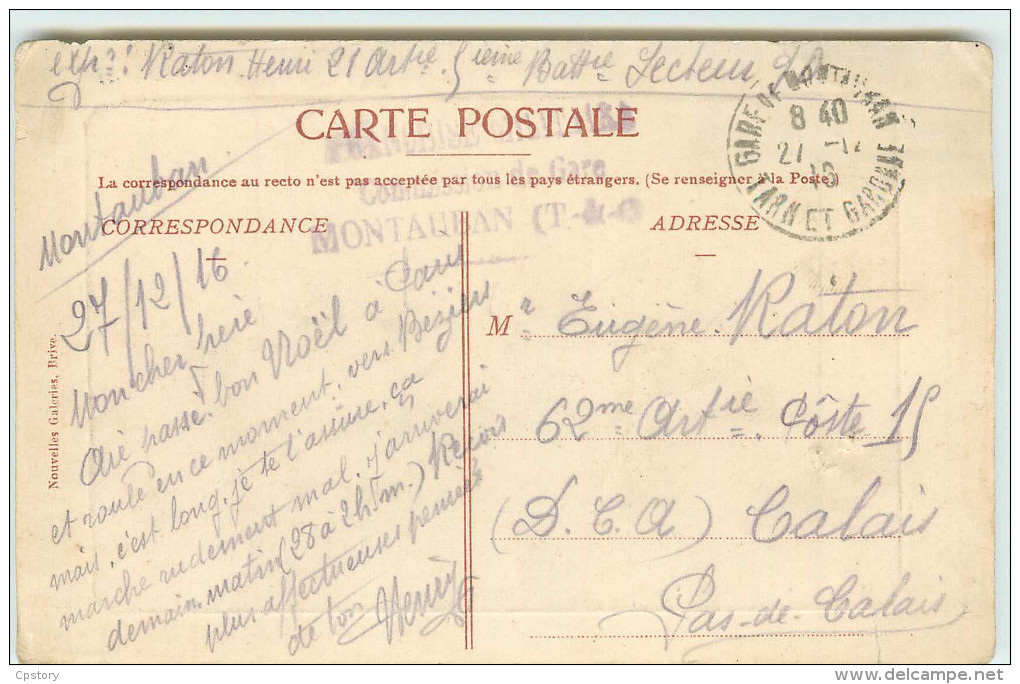 exp?: Raton Henri 21 Artie 5ieme Battie Secteur
CARTE POSTALE
Commission de Gare
MONTAUBAN (T-&-G
GARE DE MONTAUBAN
8 40
27 -12
16
TARN ET GARONNE
La correspondance au recto n'est pas acceptée par tous les pays étrangers. (Se renseigner à la Poste.)
CORRESPONDANCE
ADRESSE
Nouvelles Galeries, Brive.
Montauban
27/12/16.
Mon cher frère
Ai passé bon Noël à
et roule en ce moment, vers Béziers
mais, c'est long, je te l'assure, ça
marche rudement mal. J'arriverai
demain matin (28 à 2h m.) Reçois
plus affectueuses pensées
de ton Henri
Mr Eugène Raton
62me Artie Pôste 15
(D.C.A) Calais
Pas-de-Calais
Cpstory
www.delcampe.net